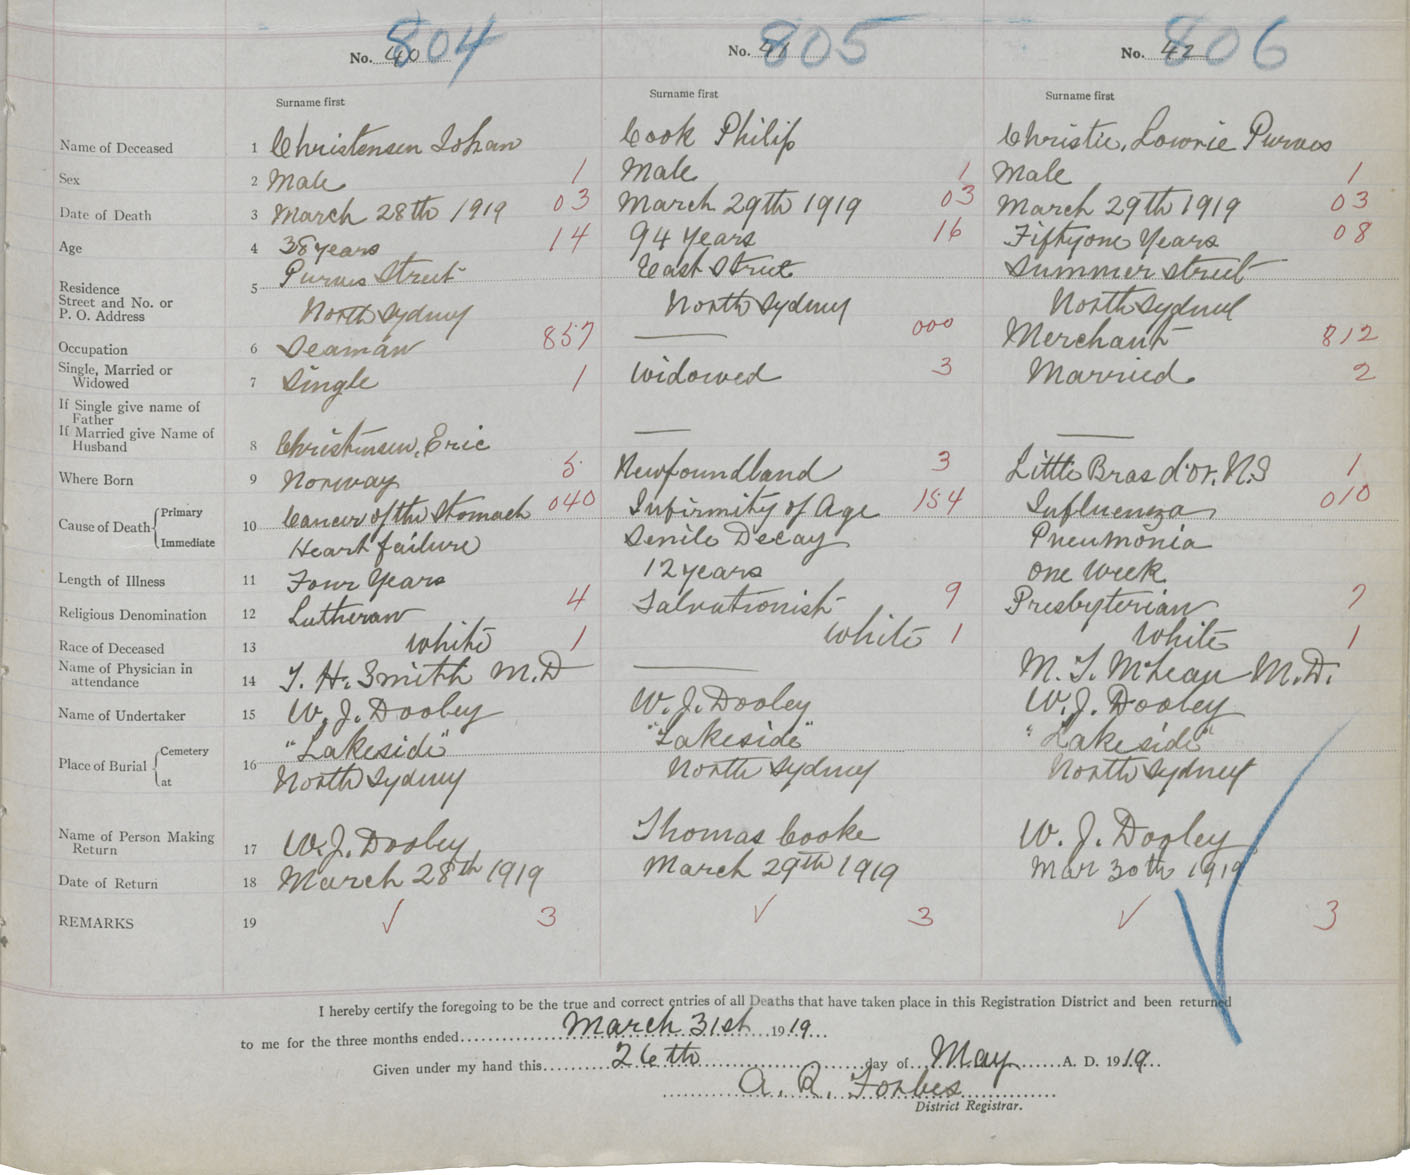 804 805 806
No. 40 No. 41 No. 42
Surname first Surname first Surname first
Name of Deceased 1 Christensen Johan Cook Philip Christie, Lowrie Purves
Sex 2 Male 1 Male 1 Male 1
Date of Death 3 March 28th 1919 03 March 29th 1919 03 March 29th 1919 03
Age 4 38 years 14 94 years 16 Fiftyone Years 08
Residence Street and No. or P. O. Address 5 Purves Street East Street Summer Street
North Sydney North Sydney North Sydney
Occupation 6 Seaman 857 — 000 Merchant 812
Single, Married or Widowed 7 Single 1 Widowed 3 Married 2
If Single give name of Father
If Married give Name of Husband 8 Christensen, Eric — —
Where Born 9 Norway 5 Newfoundland 3 Little Bras d'or, N.S 1
Cause of Death { Primary 10 Cancer of the Stomach 040 Infirmity of Age 154 Influenza 010
Immediate Heart failure Senile Decay Pneumonia
Length of Illness 11 Four Years 12 years One Week
Religious Denomination 12 Lutheran 4 Salvationist 9 Presbyterian 7
Race of Deceased 13 White 1 White 1 White 1
Name of Physician in attendance 14 T. H. Smith M.D — M. T. McLean M.D.
Name of Undertaker 15 W. J. Dooley W. J. Dooley W. J. Dooley
Place of Burial { Cemetery 16 "Lakeside" "Lakeside" "Lakeside"
at North Sydney North Sydney North Sydney
Name of Person Making Return 17 W. J. Dooley Thomas Cooke W. J. Dooley
Date of Return 18 March 28th 1919 March 29th 1919 Mar 30th 1919
REMARKS 19 ✓ 3 ✓ 3 ✓ 3
I hereby certify the foregoing to be the true and correct entries of all Deaths that have taken place in this Registration District and been returned
to me for the three months ended March 31st 1919
Given under my hand this 26th day of May A. D. 1919
A. R. Forbes
District Registrar.